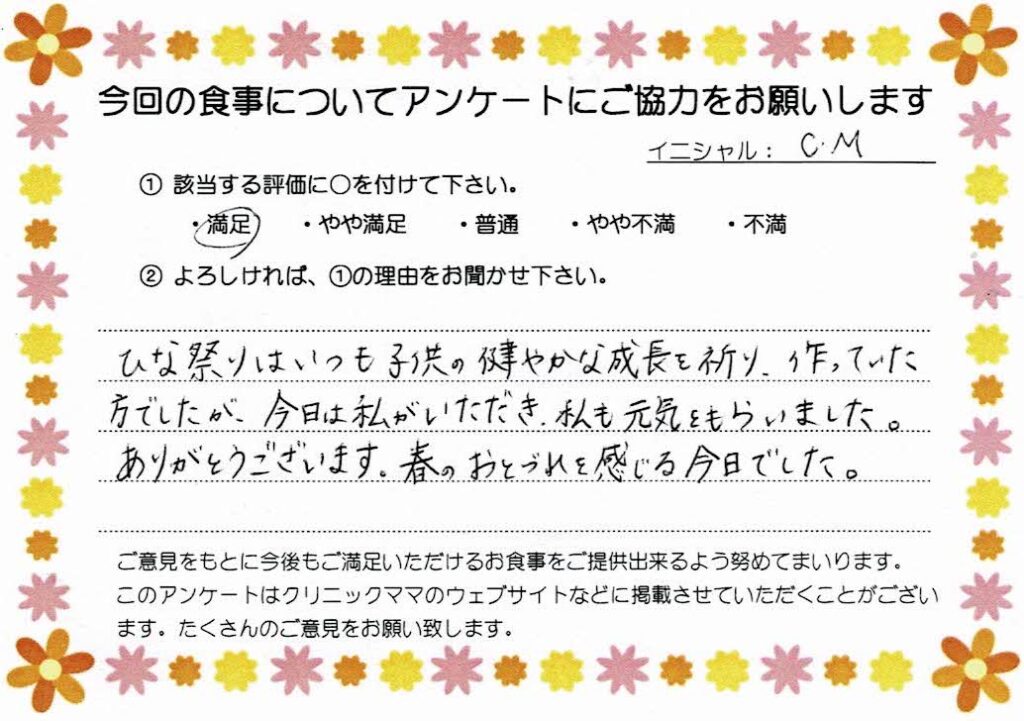 今回の食事についてアンケートにご協力をお願いします
イニシャル： C.M
① 該当する評価に○を付けて下さい。
・満足 ・やや満足 ・普通 ・やや不満 ・不満
② よろしければ、①の理由をお聞かせ下さい。
ひな祭りはいつも子供の健やかな成長を祈り、作っていた
方でしたが、今日は私がいただき、私も元気をもらいました。
ありがとうございます。春のおとづれを感じる今日でした。
ご意見をもとに今後もご満足いただけるお食事をご提供出来るよう努めてまいります。
このアンケートはクリニックママのウェブサイトなどに掲載させていただくことがござい
ます。たくさんのご意見をお願い致します。